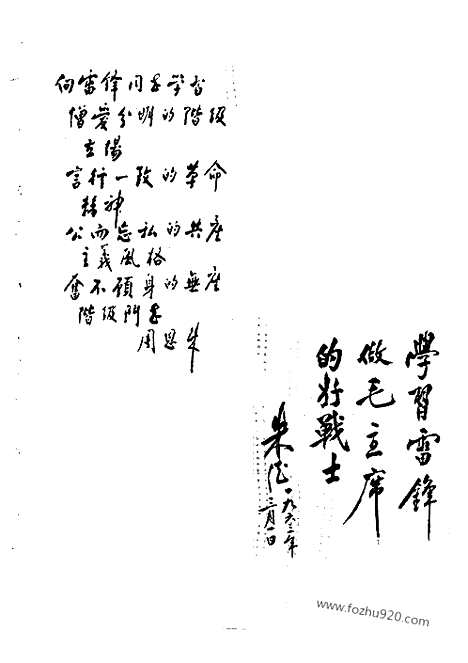 向雷锋同志学習
憎愛分明的階級
立場
言行一致的革命
精神
公而忘私的共産
主義風格
奮不顧身的無産
階級鬥志
周恩来
學習雷鋒
做毛主席
的好戰士
朱德 一九六三年
二月一日
www.fozhu920.com